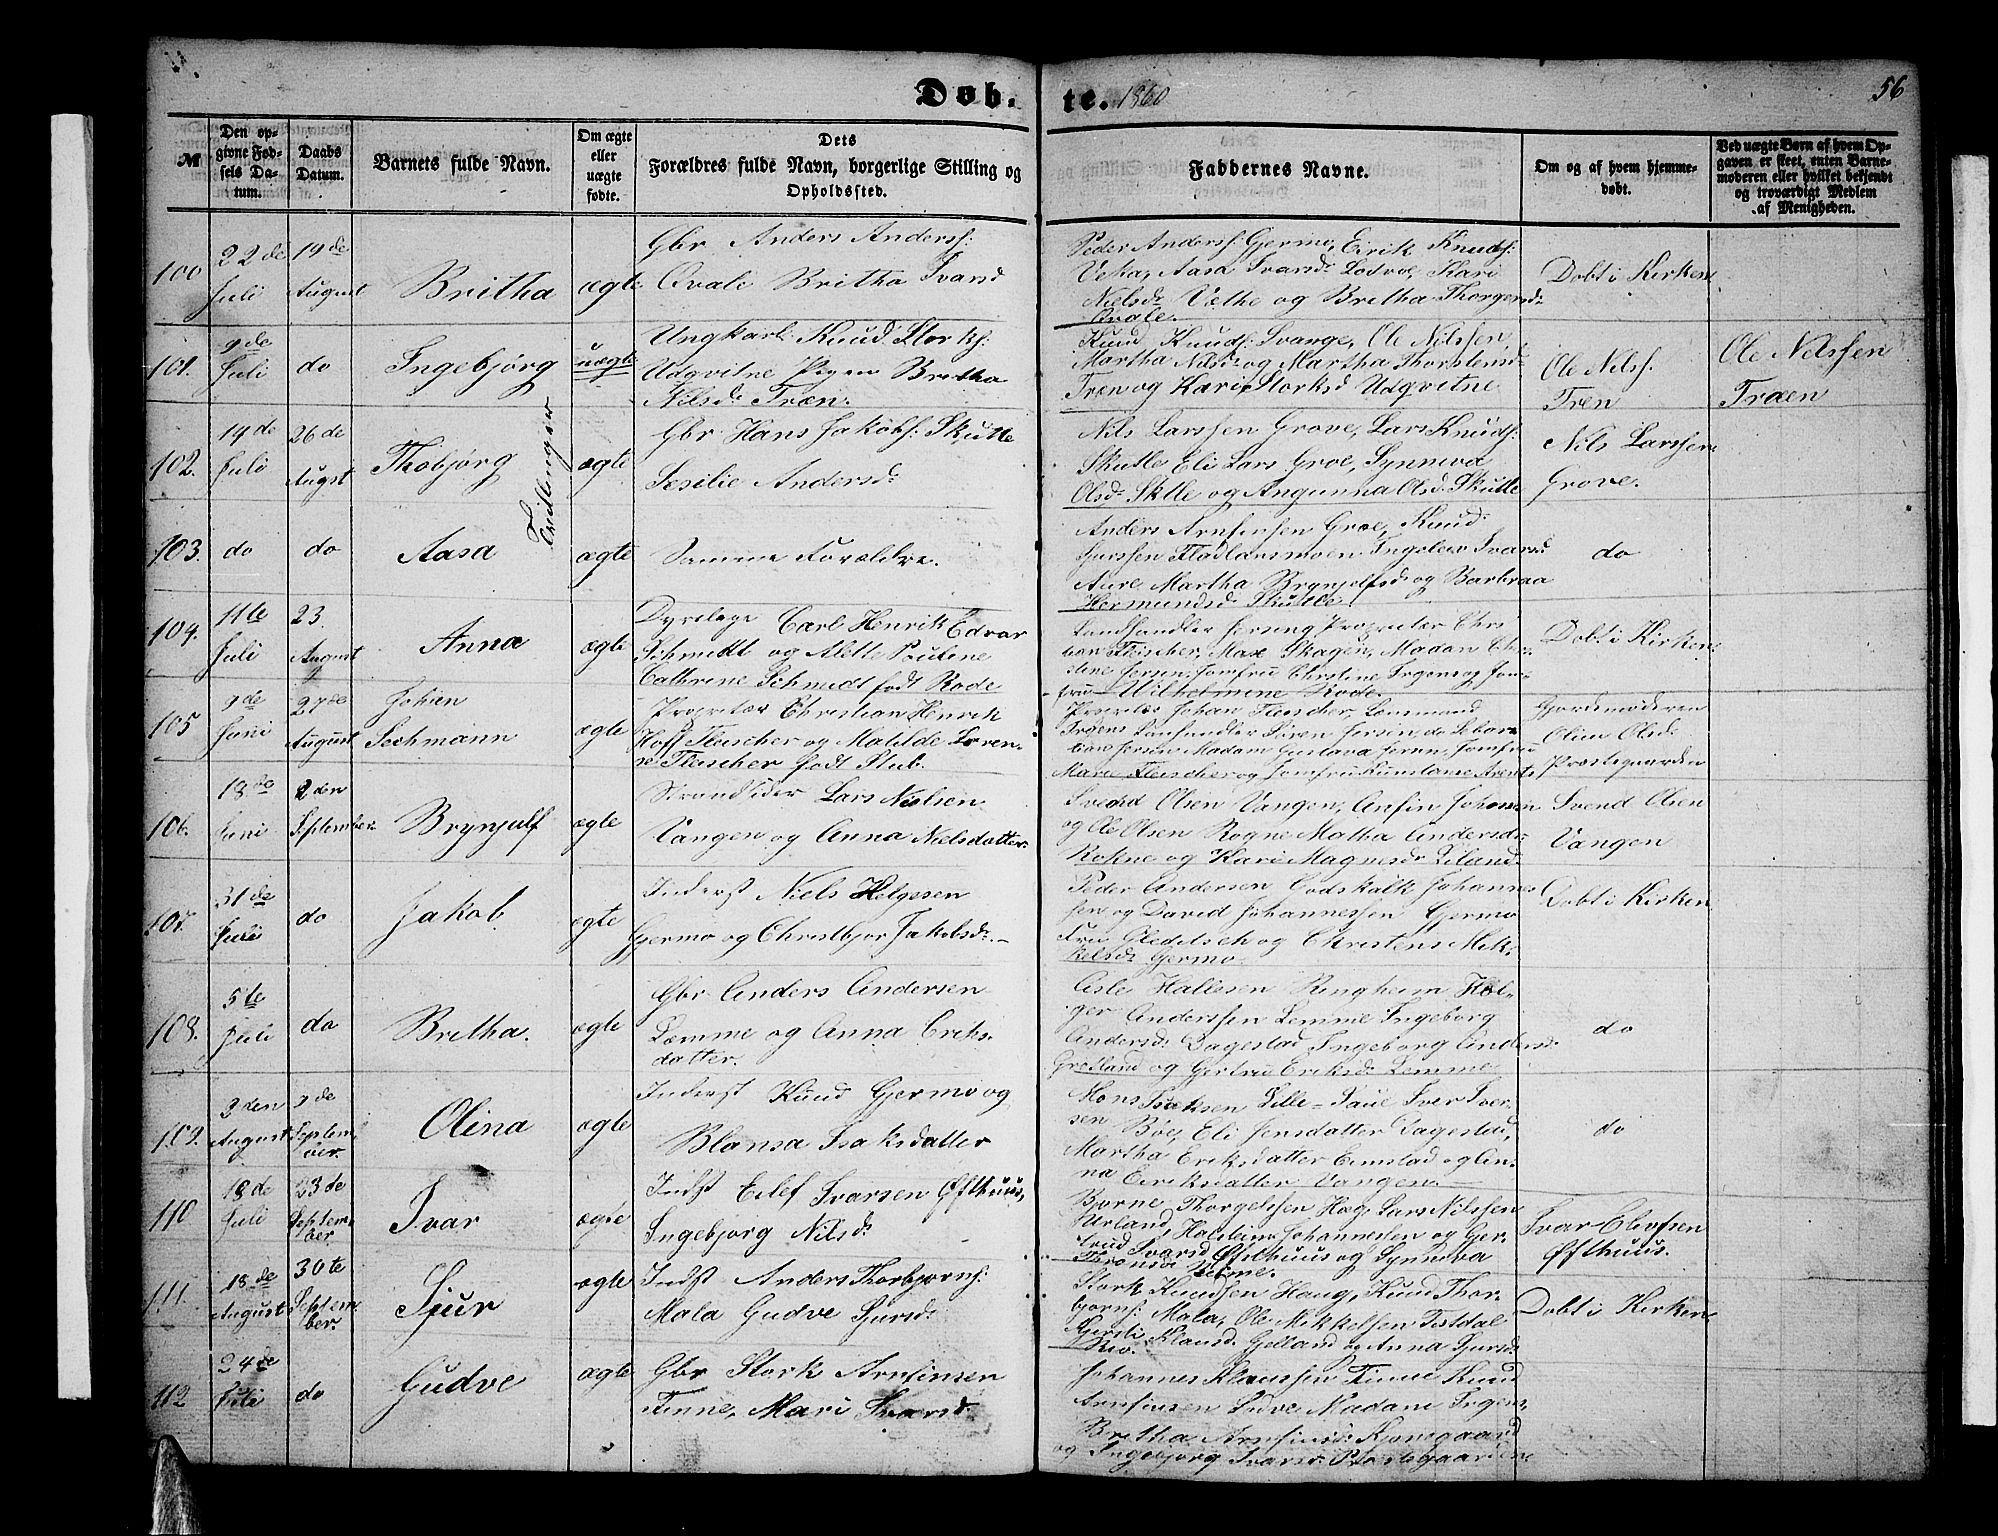 Døb-te. 1860
56
№
Den opgivne Fødsels Datum.
Daabs Datum.
Barnets fulde Navn.
Om ægte eller uægte fødte.
Dets Forældres fulde Navn, borgerlige Stilling og Opholdssted.
Faddernes Navne.
Om og af hvem hjemmedøbt.
Ved uægte Børn af hvem Opgaven er skeet, enten Barnemoderen eller hvilket bekjendt og troværdigt Medlem af Menigheden.
100
22de Juli
19de August
Britha
ægte
Gbr Anders Anderss:
Qvale Britha Ivarsd
Peder Anderss: Gjermo, Eirik Knuds:
Aasa Ivarsd: Lødve, Kari
Nielsd: Vethe og Britha Thorgersd:
Qvale.
Døbt i Kirken
101.
9de Juli
do
Ingebjørg
uægte
Ungkarl: Knud Storks:
Udgvitne Pigen Britha
Nilsd: Træn.
Knud Knuds: Svange, Ole Nilssen,
Martha Nilsd: og Martha Thorstensd:
Træn og Kari Storksd Udgvitne
Ole Nilss.
Tren
Ole Nilssen
Træen
102.
14de Juli
26de Augst
Thobjørg
Tvillinger
ægte
Gbr Hans Jakobs: Skutle
Sesilie Andersd:
Nils Larssen Grove, Lars Knuds:
Skutle Eli Lars Groe, Synneva
Olsd: Sktle og Angunna Olsd Skutle
Nils Larssen
Grove.
103.
do
do
Aasa
ægte
Samme Forældre.
Anders Arnfinsen Groe, Knud
Sjurssen Fladlarsmoen Ingeleiv Ivarsd
Aure Martha Brynjelfsd: og Barbraa
Hermundsd Skutle
do
104.
11te Juli
23. August
Anna
ægte
Dyrelæge Carl Henrik Edvar
Schmidt og Alette Pouline
Cathrine Schmidt født Rode
Landhandler Jersing Proprietær Chri
Fleischer, Max Skagen, Madam Chr-
stine Jersin, Jomfru Christine Irgens og Jom-
fru Wilhelmine Rode.
Døbt i Kirken
105
9de Juni
27de August
Johan
Sechmann
ægte
Proprietær Christian Henrik
Hoff Fleischer og Matilde Loren-
ze Fleischer født Stub.
Johan Fleischer,
Landhandler Søren Jersin,
Jersin Madam Gustava Jersin, Jomfru
Marie Fleischer og Jomfru Kunstanse Arents
Gjordemoderen
Oline Olsd:
Præstegaarden
106.
18de Juni
2den September
Brynjulf
ægte
Strandsider Lars Nielsen
Vangen og Anna Nielsdatter
Svend Olsen Vangen, Anfin Johannes
og Ole Olsen Rogne Matha Andersd:
Rokne og Kari Magnesd: Eiland.
Svend Olsen
Vangen
107.
31de Juli
do
Jakob.
ægte
Inderst Niels Helgesen
Gjermo og Christbjør Jakobsd:
Peder Andersen Bødskalk Johannes
sen og David Johannessen Gjermo
Fru Gleditsch og Christens Mik-
kelsd: Gjermo.
Døbt i Kirken
108.
5te Juli
do
Britha.
ægte
Gbr Anders Andersen
Lemme og Anna Eriks-
datter.
Aslе Hallesen Ringheim Hol-
ger Anderssen Lemme Ingeborg
Andersd: Dagestad Ingeborg Anders:
Gretland og Gjertru Eriksd: Lemme
do
109.
3den August
9de September.
Olina
ægte
Inderst Knud Gjermo og
Blansa Isaksdatter
Mons Isaksen Lille-Saue Iver Iver-
sen Bøe, Eli Jensdatter Dagestad,
Martha Eriksdatter Eimstad og An-
na Eeriksdatter Vangen.
do
110
18de Juli
23de September
Ivar
ægte
Indst Eilef Ivarsen Øfthuus,
Ingebjørg Nilsd:
Bjørne Thorgelssen Hæg, Lars Nilssen
Urland, Holstein Johannesen og Ger
trud Ivarsd Øfsthuus og Synneva
Ivar Elivfsen
Øfthuus.
111.
18de August
30te September.
Sjur
ægte
Indst Anders Thorbjørns:
Mala Gudve Sjursd:
Stork Knudsen Haug, Knud Thor-
bjørns: Mala, Ole Mikkelsen Istdal
Kjersti Klausd: Gjelland og Anna Sjursd:
Rio.
Døbt i Kirken
112
24de Juli
do
Gudve
ægte
Gbr Stork Arnfinsen
Finne, Mari Ivarsd.
Johannes Klaussen Finne Knud
Arnfinsen Madam Irgens,
Britha Arnfinsd: Kjonsgaard
og Ingebjørg Ivarsd: Præstegaardene